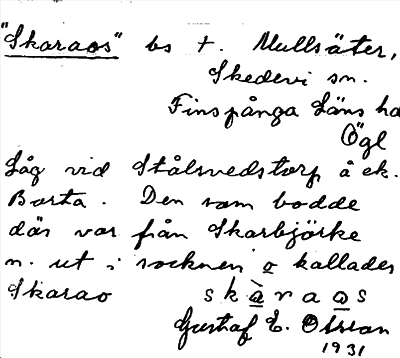 "Skaraos" bs t. Mullsäter,
Skedevi sn.
Finspånga Läns hd
Ögl
Låg vid Stålsvedstorp å ek.
Borta. Den som bodde
där var från Skarbjörke
n. ut i socknen o kallades
Skarao skàraωs
Gustaf E. Ottson
1931